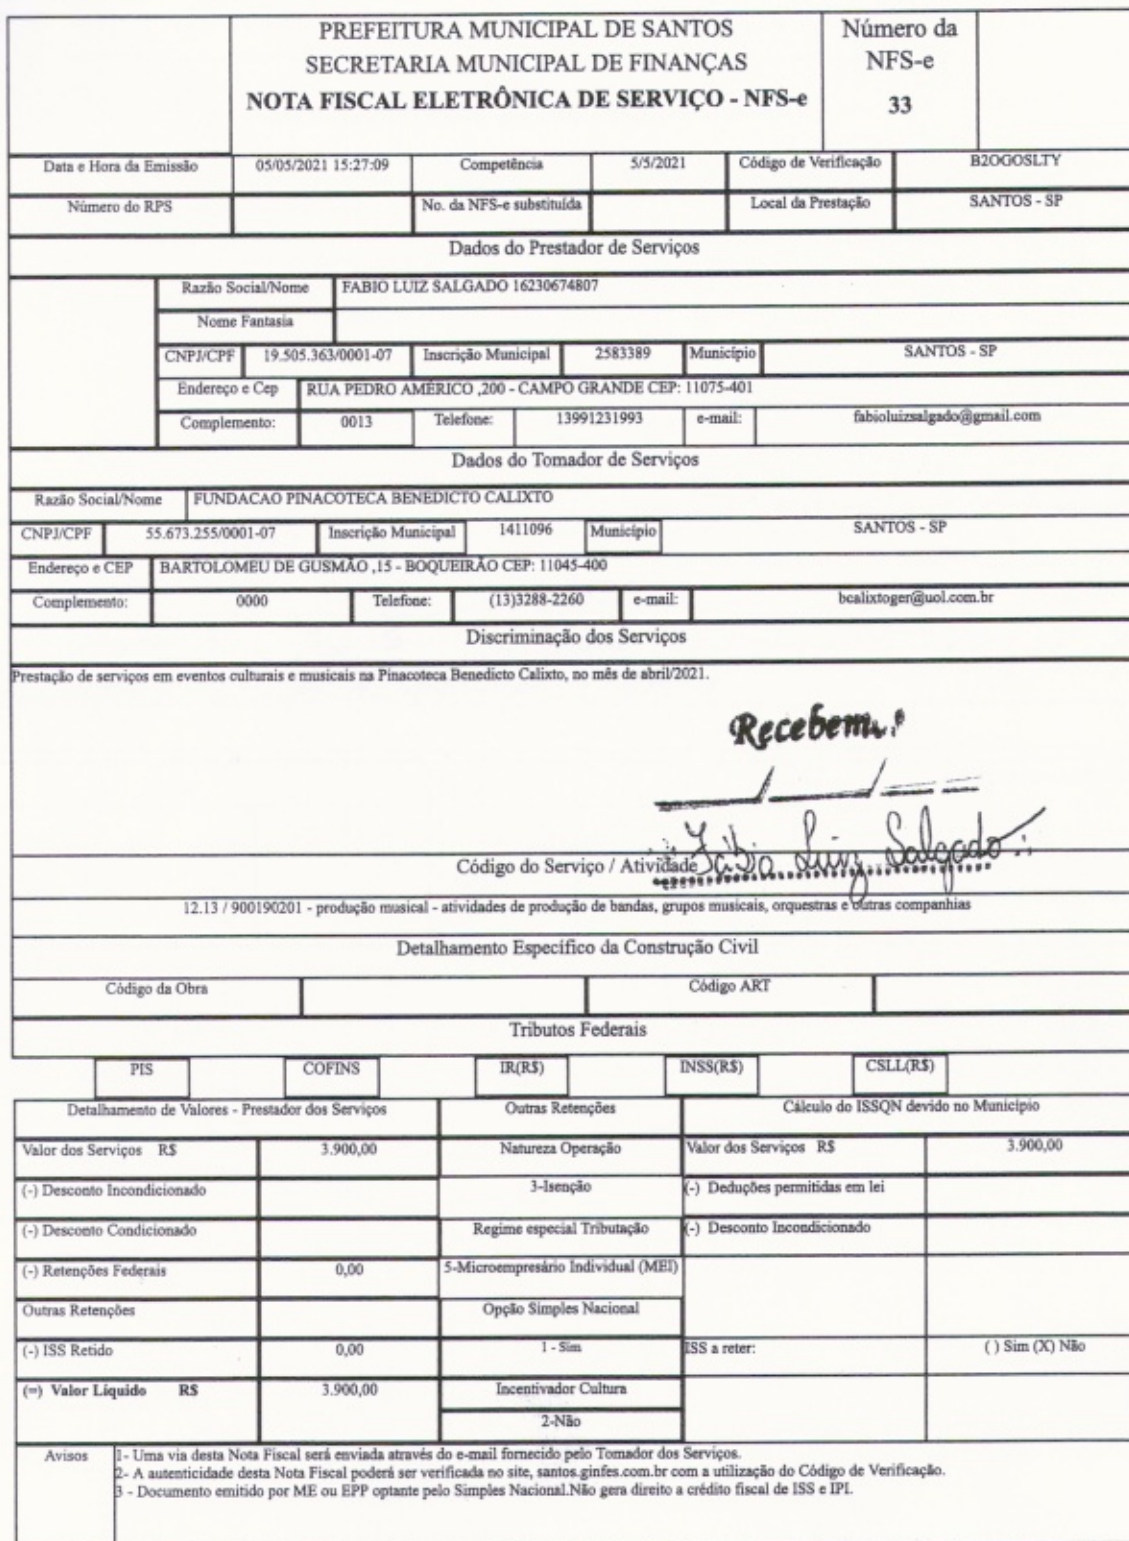 PREFEITURA MUNICIPAL DE SANTOS
SECRETARIA MUNICIPAL DE FINANÇAS
NOTA FISCAL ELETRÔNICA DE SERVIÇO - NFS-e
Número da
NFS-e
33
Data e Hora da Emissão 05/05/2021 15:27:09 Competência 5/5/2021 Código de Verificação B2OGOSLTY
Número do RPS No. da NFS-e substituída Local da Prestação SANTOS - SP
Dados do Prestador de Serviços
Razão Social/Nome FABIO LUIZ SALGADO 16230674807
Nome Fantasia
CNPJ/CPF 19.505.363/0001-07 Inscrição Municipal 2583389 Município SANTOS - SP
Endereço e Cep RUA PEDRO AMÉRICO ,200 - CAMPO GRANDE CEP: 11075-401
Complemento: 0013 Telefone: 13991231993 e-mail: fabioluizsalgado@gmail.com
Dados do Tomador de Serviços
Razão Social/Nome FUNDACAO PINACOTECA BENEDICTO CALIXTO
CNPJ/CPF 55.673.255/0001-07 Inscrição Municipal 1411096 Município SANTOS - SP
Endereço e CEP BARTOLOMEU DE GUSMÃO ,15 - BOQUEIRÃO CEP: 11045-400
Complemento: 0000 Telefone: (13)3288-2260 e-mail: bcalixtoger@uol.com.br
Discriminação dos Serviços
Prestação de serviços em eventos culturais e musicais na Pinacoteca Benedicto Calixto, no mês de abril/2021.
Recebem
Fábio Luiz Salgado
Código do Serviço / Atividade
12.13 / 900190201 - produção musical - atividades de produção de bandas, grupos musicais, orquestras e outras companhias
Detalhamento Específico da Construção Civil
Código da Obra Código ART
Tributos Federais
PIS COFINS IR(R$) INSS(R$) CSLL(R$)
Detalhamento de Valores - Prestador dos Serviços Outras Retenções Cálculo do ISSQN devido no Município
Valor dos Serviços R$ 3.900,00 Natureza Operação Valor dos Serviços R$ 3.900,00
(-) Desconto Incondicionado 3-Isenção (-) Deduções permitidas em lei
(-) Desconto Condicionado Regime especial Tributação (-) Desconto Incondicionado
(-) Retenções Federais 0,00 5-Microempresário Individual (MEI)
Outras Retenções Opção Simples Nacional
(-) ISS Retido 0,00 1 - Sim ISS a reter: ( ) Sim (X) Não
(=) Valor Líquido R$ 3.900,00 Incentivador Cultura
2-Não
Avisos 1- Uma via desta Nota Fiscal será enviada através do e-mail fornecido pelo Tomador dos Serviços.
2- A autenticidade desta Nota Fiscal poderá ser verificada no site, santos.ginfes.com.br com a utilização do Código de Verificação.
3 - Documento emitido por ME ou EPP optante pelo Simples Nacional.Não gera direito a crédito fiscal de ISS e IPI.